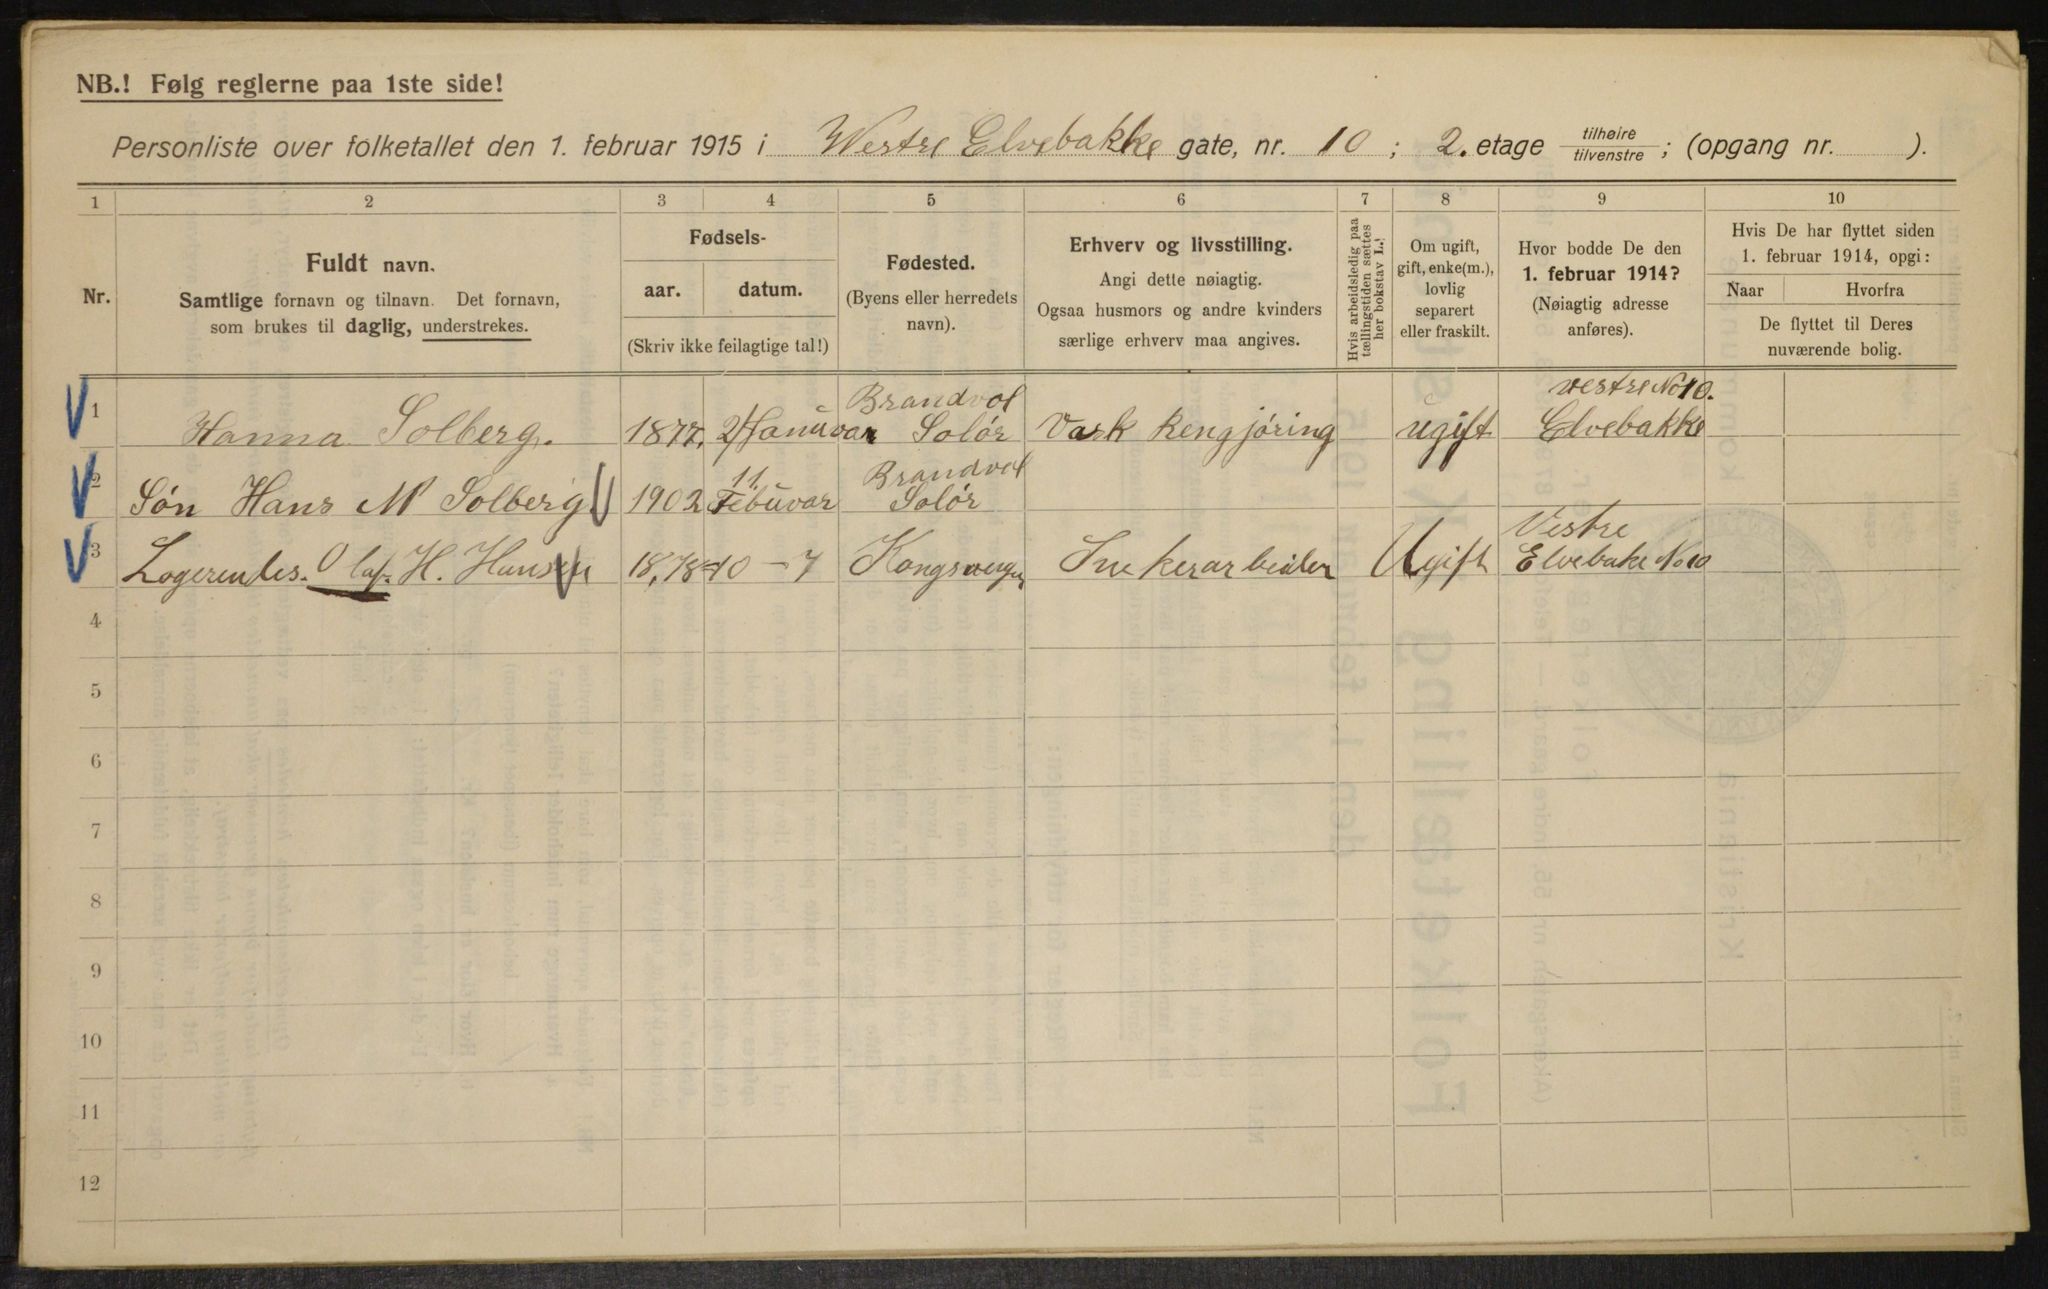 NB.! Følg reglerne paa 1ste side!
Personliste over folketallet den 1. februar 1915 i Westre Elvebakke gate, nr. 10 ; 2. etage tilhøire / tilvenstre ; (opgang nr. ).
1 2 3 4 5 6 7 8 9 10
Nr.
Fuldt navn.
Samtlige fornavn og tilnavn. Det fornavn,
som brukes til daglig, understrekes.
Fødsels-
aar. datum.
(Skriv ikke feilagtige tal!)
Fødested.
(Byens eller herredets
navn).
Erhverv og livsstilling.
Angi dette nøiagtig.
Ogsaa husmors og andre kvinders
særlige erhverv maa angives.
Hvis arbeidsledig paa
tællingstiden sættes
her bokstav L.!
Om ugift,
gift, enke(m.),
lovlig
separert
eller fraskilt.
Hvor bodde De den
1. februar 1914?
(Nøiagtig adresse
anføres).
Hvis De har flyttet siden
1. februar 1914, opgi:
Naar Hvorfra
De flyttet til Deres
nuværende bolig.
1 Hanna Solberg. 1877. 2/Januar Brandvol Solör Vask Rengjöring ugift vestre No 10. Elvebakke
2 Sön Hans M Solberg 1902 11. Febuvar Brandvol Solör
3 Logerendes. Olaf H. Hansen 18,78 10 – 7 Kongsvinger Snekerarbeider Ugift Vestre Elvebake No 10
4
5
6
7
8
9
10
11
12